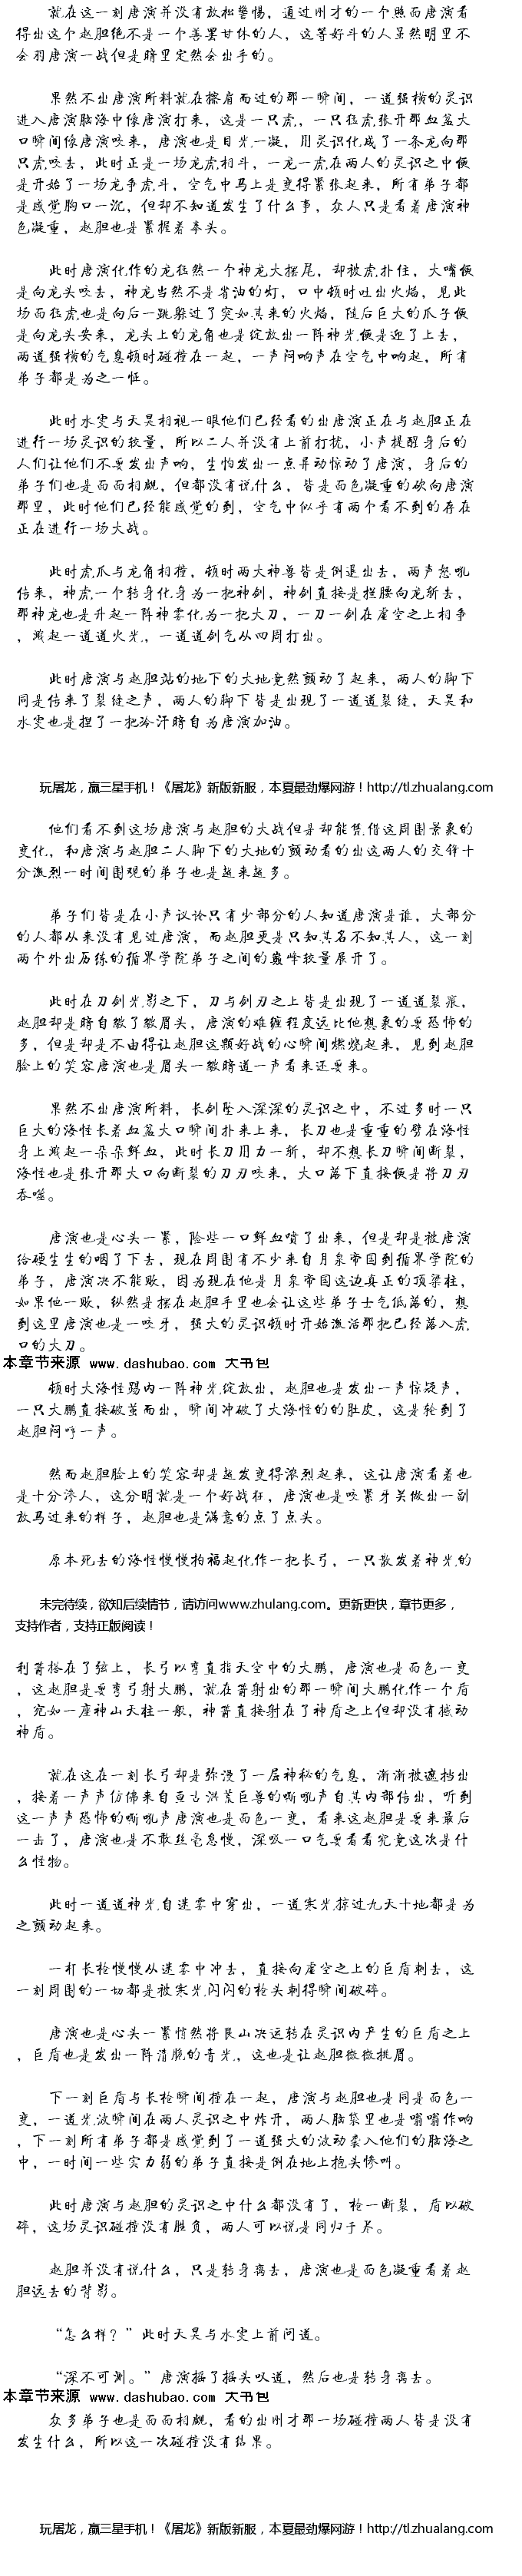 就在这一刻唐演并没有放松警惕，通过刚才的一个照面唐演看
得出这个赵胆绝不是一个善罢甘休的人，这等好斗的人虽然明里不
会羽唐演一战但是暗里定然会出手的。
果然不出唐演所料就在擦肩而过的那一瞬间，一道强横的灵识
进入唐演脑海中像唐演打来，这是一只虎，一只猛虎，张开那血盆大
口瞬间像唐演咬来，唐演也是目光一凝，用灵识化成了一条龙向那
只虎咬去，此时正是一场龙虎相斗，一龙一虎在两人的灵识之中便
是开始了一场龙争虎斗，空气中马上是变得紧张起来，所有弟子都
是感觉胸口一沉，但却不知道发生了什么事，众人只是看着唐演神
色凝重，赵胆也是紧握着拳头。
此时唐演化作的龙猛然一个神龙大摆尾，却被虎扑住，大嘴便
是向龙头咬去，神龙当然不是省油的灯，口中顿时吐出火焰，见此
场面猛虎也是向后一跳躲过了突如其来的火焰，随后巨大的爪子便
是向龙头安来，龙头上的龙角也是绽放出一阵神光便是迎了上去，
两道强横的气息顿时碰撞在一起，一声闷响声在空气中响起，所有
弟子都是为之一怔。
此时水雯与天昊相视一眼他们已经看的出唐演正在与赵胆正在
进行一场灵识的较量，所以二人并没有上前打扰，小声提醒身后的
人们让他们不要发出声响，生怕发出一点异动惊动了唐演，身后的
弟子们也是面面相觑，但都没有说什么，皆是面色凝重的砍向唐演
那里，此时他们已经能感觉的到，空气中似乎有两个看不到的存在
正在进行一场大战。
此时虎爪与龙角相撞，顿时两大神兽皆是倒退出去，两声怒吼
传来，神虎一个转身化身为一把神剑，神剑直接是拦腰向龙斩去，
那神龙也是升起一阵神雾化为一把大刀，一刀一剑在虚空之上相争
，溅起一道道火光，一道道剑气从四周打出。
此时唐演与赵胆站的地下的大地竟然颤动了起来，两人的脚下
同是传来了裂缝之声，两人的脚下皆是出现了一道道裂缝，天昊和
水雯也是捏了一把冷汗暗自为唐演加油。
玩屠龙，赢三星手机！《屠龙》新版新服，本夏最劲爆网游！http://tl.zhulang.com
他们看不到这场唐演与赵胆的大战但是却能凭借这周围景象的
变化，和唐演与赵胆二人脚下的大地的颤动看的出这两人的交锋十
分激烈一时间围观的弟子也是越来越多。
弟子们皆是在小声议论只有少部分的人知道唐演是谁，大部分
的人都从来没有见过唐演，而赵胆更是只知其名不知其人，这一刻
两个外出历练的循界学院弟子之间的巅峰较量展开了。
此时在刀剑光影之下，刀与剑刃之上皆是出现了一道道裂痕，
赵胆却是暗自皱了皱眉头，唐演的难缠程度远比他想象的要恐怖的
多，但是却是不由得让赵胆这颗好战的心瞬间燃烧起来，见到赵胆
脸上的笑容唐演也是眉头一皱暗道一声看来还要来。
果然不出唐演所料，长剑坠入深深的灵识之中，不过多时一只
巨大的海怪长着血盆大口瞬间扑来上来，长刀也是重重的劈在海怪
身上溅起一朵朵鲜血，此时长刀用力一斩，却不想长刀瞬间断裂，
海怪也是张开那大口向断裂的刀刃咬来，大口落下直接便是将刀刃
吞噬。
唐演也是心头一紧，险些一口鲜血喷了出来，但是却是被唐演
给硬生生的咽了下去，现在周围有不少来自月泉帝国到循界学院的
弟子，唐演决不能败，因为现在他是月泉帝国这边真正的顶梁柱，
如果他一败，纵然是摆在赵胆手里也会让这些弟子士气低落的，想
到这里唐演也是一咬牙，强大的灵识顿时开始激活那把已经落入虎
口的大刀。
本章节来源 www.dashubao.com 大书包
顿时大海怪腭内一阵神光绽放出，赵胆也是发出一声惊疑声，
一只大鹏直接破茧而出，瞬间冲破了大海怪的的肚皮，这是轮到了
赵胆闷哼一声。
然而赵胆脸上的笑容却是越发变得浓烈起来，这让唐演看着也
是十分渗人，这分明就是一个好战狂，唐演也是咬紧牙关做出一副
放马过来的样子，赵胆也是满意的点了点头。
原本死去的海怪慢慢拘福起化作一把长弓，一只散发着神光的
未完待续，欲知后续情节，请访问www.zhulang.com。更新更快，章节更多，
支持作者，支持正版阅读！
利箭搭在了弦上，长弓以弯直指天空中的大鹏，唐演也是面色一变
，这赵胆是要弯弓射大鹏，就在箭射出的那一瞬间大鹏化作一个盾
，宛如一座神山天柱一般，神箭直接射在了神盾之上但却没有撼动
神盾。
就在这在一刻长弓却是弥漫了一层神秘的气息，渐渐被遮挡出
，接着一声声仿佛来自亘古洪荒巨兽的嘶吼声自其内部传出，听到
这一声声恐怖的嘶吼声唐演也是面色一变，看来这赵胆是要来最后
一击了，唐演也是不敢丝毫怠慢，深吸一口气要看看究竟这次是什
么怪物。
此时一道道神光自迷雾中穿出，一道寒光掠过九天十地都是为
之颤动起来。
一杆长枪慢慢从迷雾中冲去，直接向虚空之上的巨盾刺去，这
一刻周围的一切都是被寒光闪闪的枪头刺得瞬间破碎。
唐演也是心头一紧悄然将艮山决运转在灵识内产生的巨盾之上
，巨盾也是发出一阵清脆的青光，这也是让赵胆微微挑眉。
下一刻巨盾与长枪瞬间撞在一起，唐演与赵胆也是同是面色一
变，一道光波瞬间在两人灵识之中炸开，两人脑袋里也是嗡嗡作响
，下一刻所有弟子都是感觉到了一道强大的波动袭入他们的脑海之
中，一时间一些实力弱的弟子直接是倒在地上抱头惨叫。
此时唐演与赵胆的灵识之中什么都没有了，枪一断裂，盾以破
碎，这场灵识碰撞没有胜负，两人可以说是同归于尽。
赵胆并没有说什么，只是转身离去，唐演也是面色凝重看着赵
胆远去的背影。
“怎么样？”此时天昊与水雯上前问道。
“深不可测。”唐演摇了摇头叹道，然后也是转身离去。
本章节来源 www.dashubao.com 大书包
众多弟子也是面面相觑，看的出刚才那一场碰撞两人皆是没有
发生什么，所以这一次碰撞没有结果。
玩屠龙，赢三星手机！《屠龙》新版新服，本夏最劲爆网游！http://tl.zhulang.com